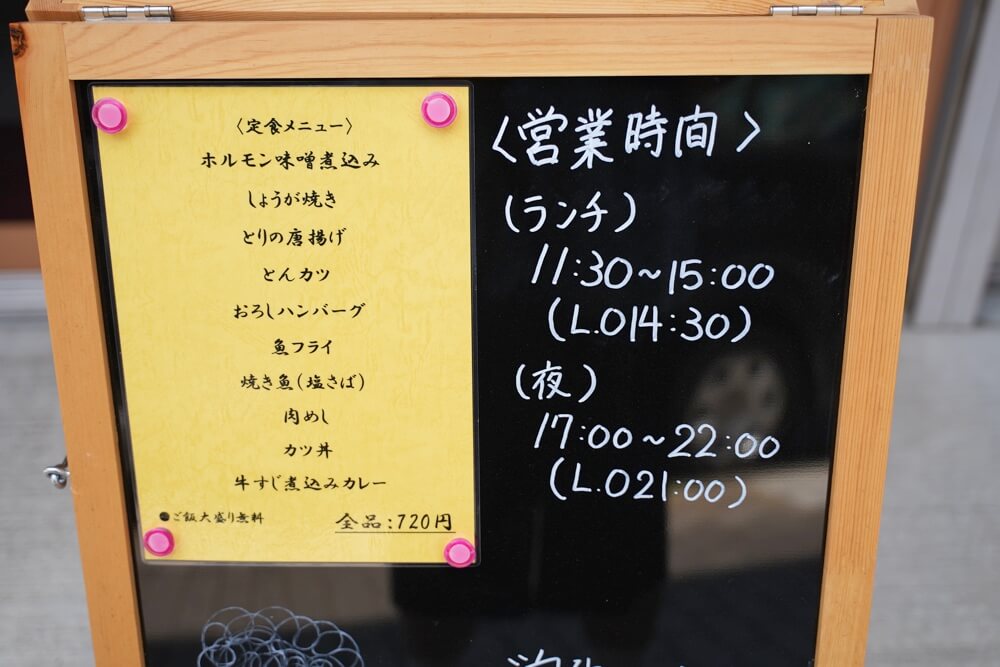 〈定食メニュー〉
ホルモン味噌煮込み
しょうが焼き
とりの唐揚げ
とんカツ
おろしハンバーグ
魚フライ
焼き魚(塩さば)
肉めし
カツ丼
牛すじ煮込みカレー
●ご飯大盛り無料
全品:720円
〈営業時間〉
(ランチ)
11:30~15:00
(L.O14:30)
(夜)
17:00~22:00
(L.O21:00)